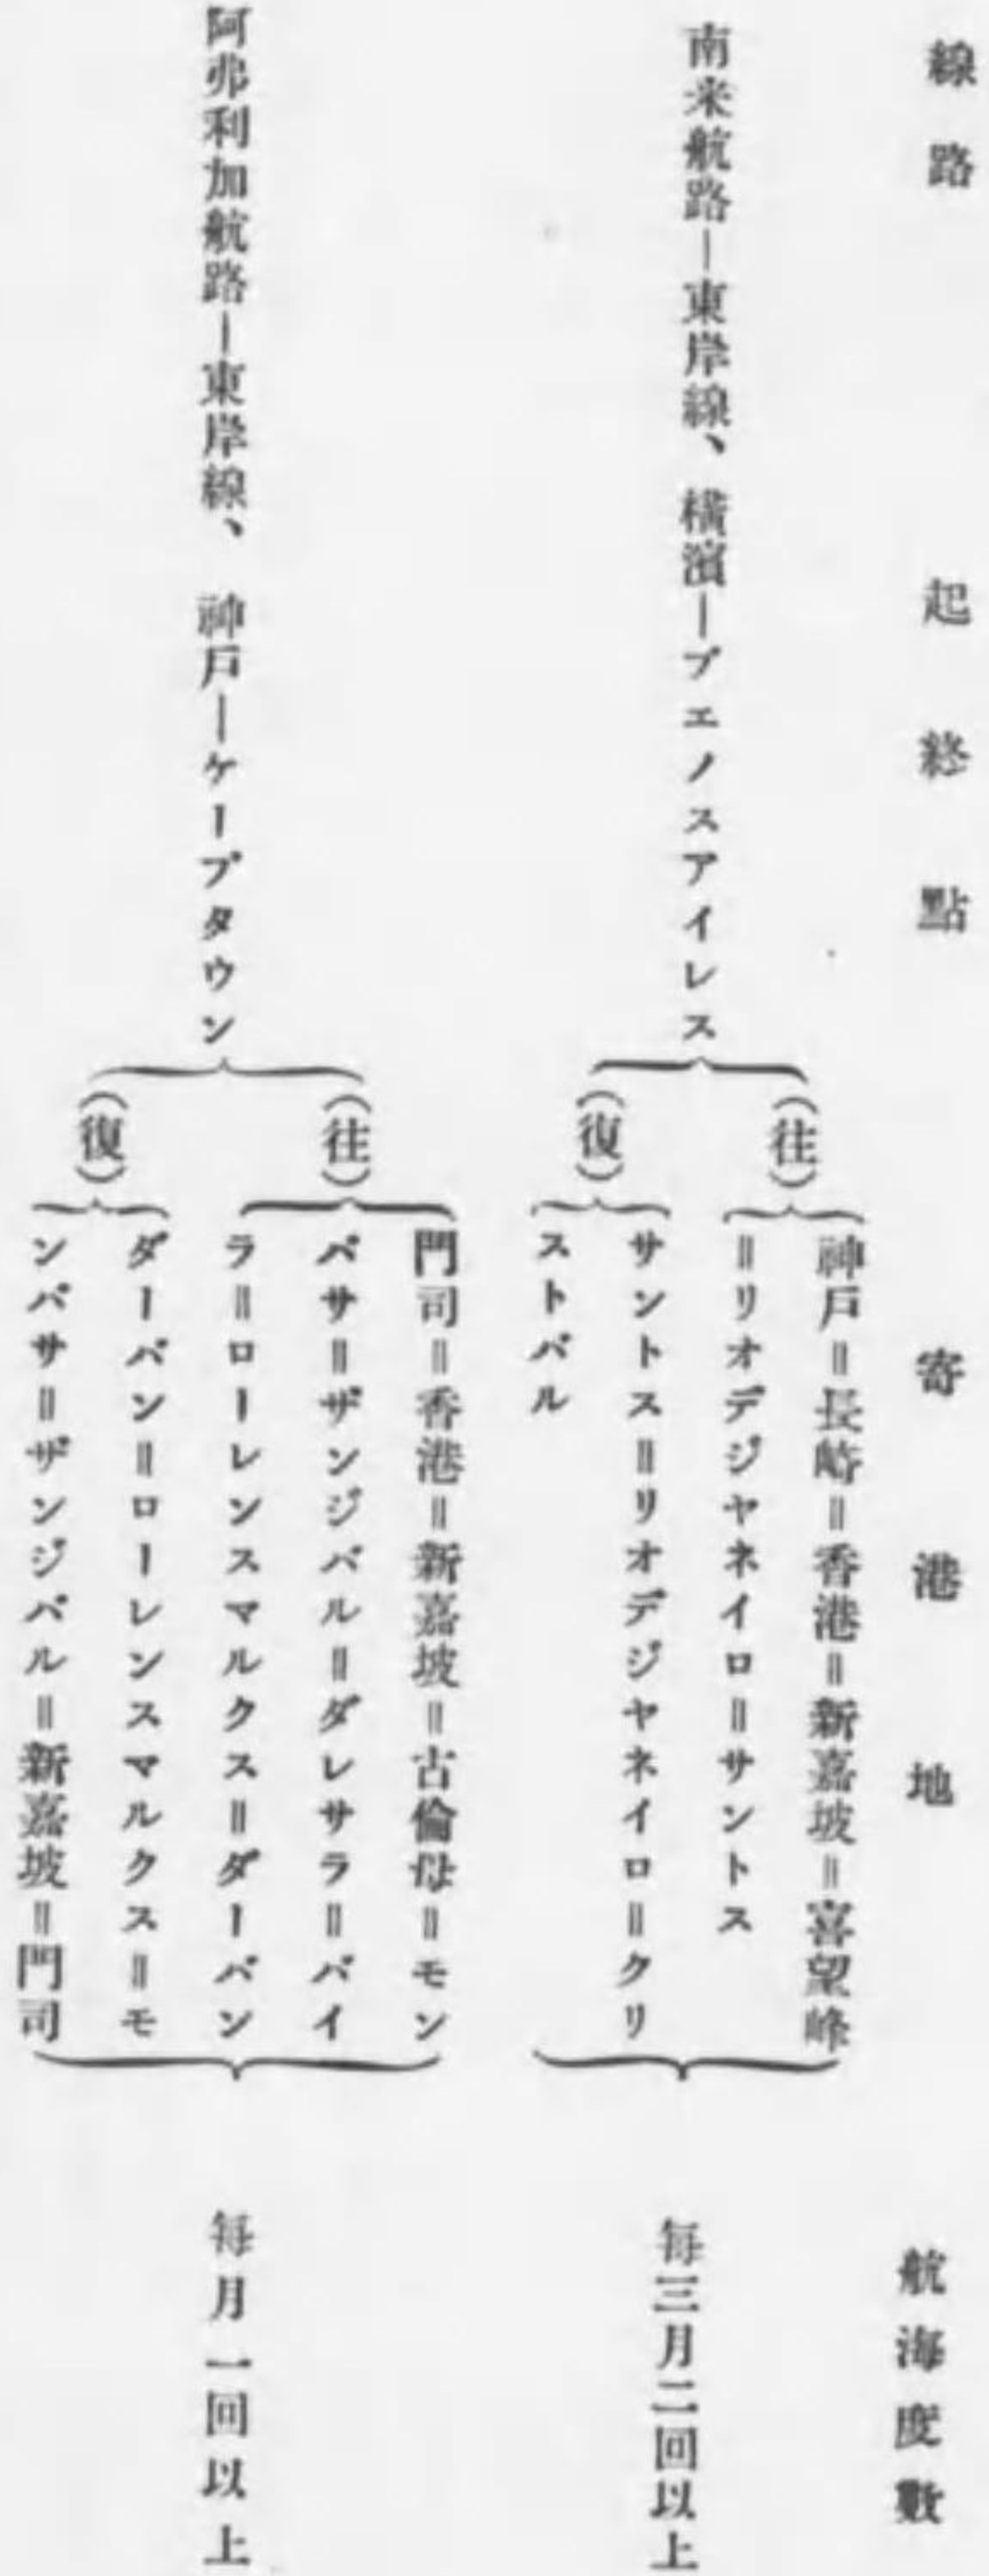 線路　起終點　寄港地　航海度數
南米航路―東岸線、橫濱―ブエノスアイレス
(往)
神戶＝長崎＝香港＝新嘉坡＝喜望峰
＝リオデジヤネイロ＝サントス
(復)
サントス＝リオデジヤネイロ＝クリ
ストバル
每三月二回以上
阿弗利加航路―東岸線、神戶―ケープタウン
(往)
門司＝香港＝新嘉坡＝古倫母＝モン
バサ＝ザンジバル＝ダレサラ＝バイ
ラ＝ローレンスマルクス＝ダーバン
(復)
ダーバン＝ローレンスマルクス＝モ
ンバサ＝ザンジバル＝新嘉坡＝門司
每月一回以上